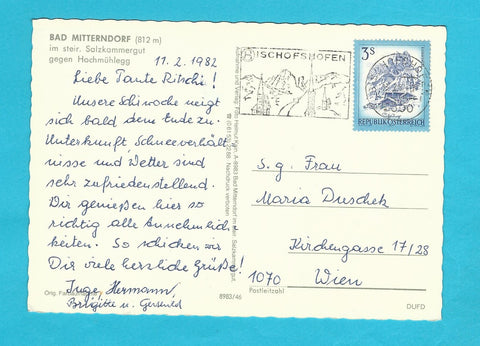 BAD MITTERNDORF (812 m)
im steir. Salzkammergut
gegen Hochmühlegg
11.2.1982
Liebe Tante Ritschi!
Unsere Schiwoche neigt
sich bald dem Ende zu.
Unterkunft, Schneeverhält
nisse und Wetter sind
sehr zufriedenstellend.
Wir genießen hier so
richtig alle Annehmlich
keiten. So schicken wir
Dir viele herzliche Grüße!
Inge Hermann
Brigitte u.
BISCHOFSHOFEN
3 S
REPUBLIK ÖSTERREICH
S.g. Frau
Maria Duschek
Kirchengasse 17/28
1070 Wien
Postleitzahl
8983/46
DUFD